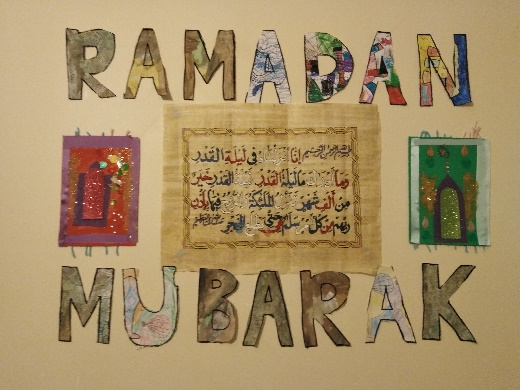 RAMADAN
بسم الله الرحمن الرحيم إنا أنزلناه في ليلة القدر
وما أدراك ما ليلة القدر ليلة القدر خير
من ألف شهر تنزل الملئكة والروح فيها بإذن
ربهم من كل أمر سلم هي حتى مطلع الفجر
MUBARAK